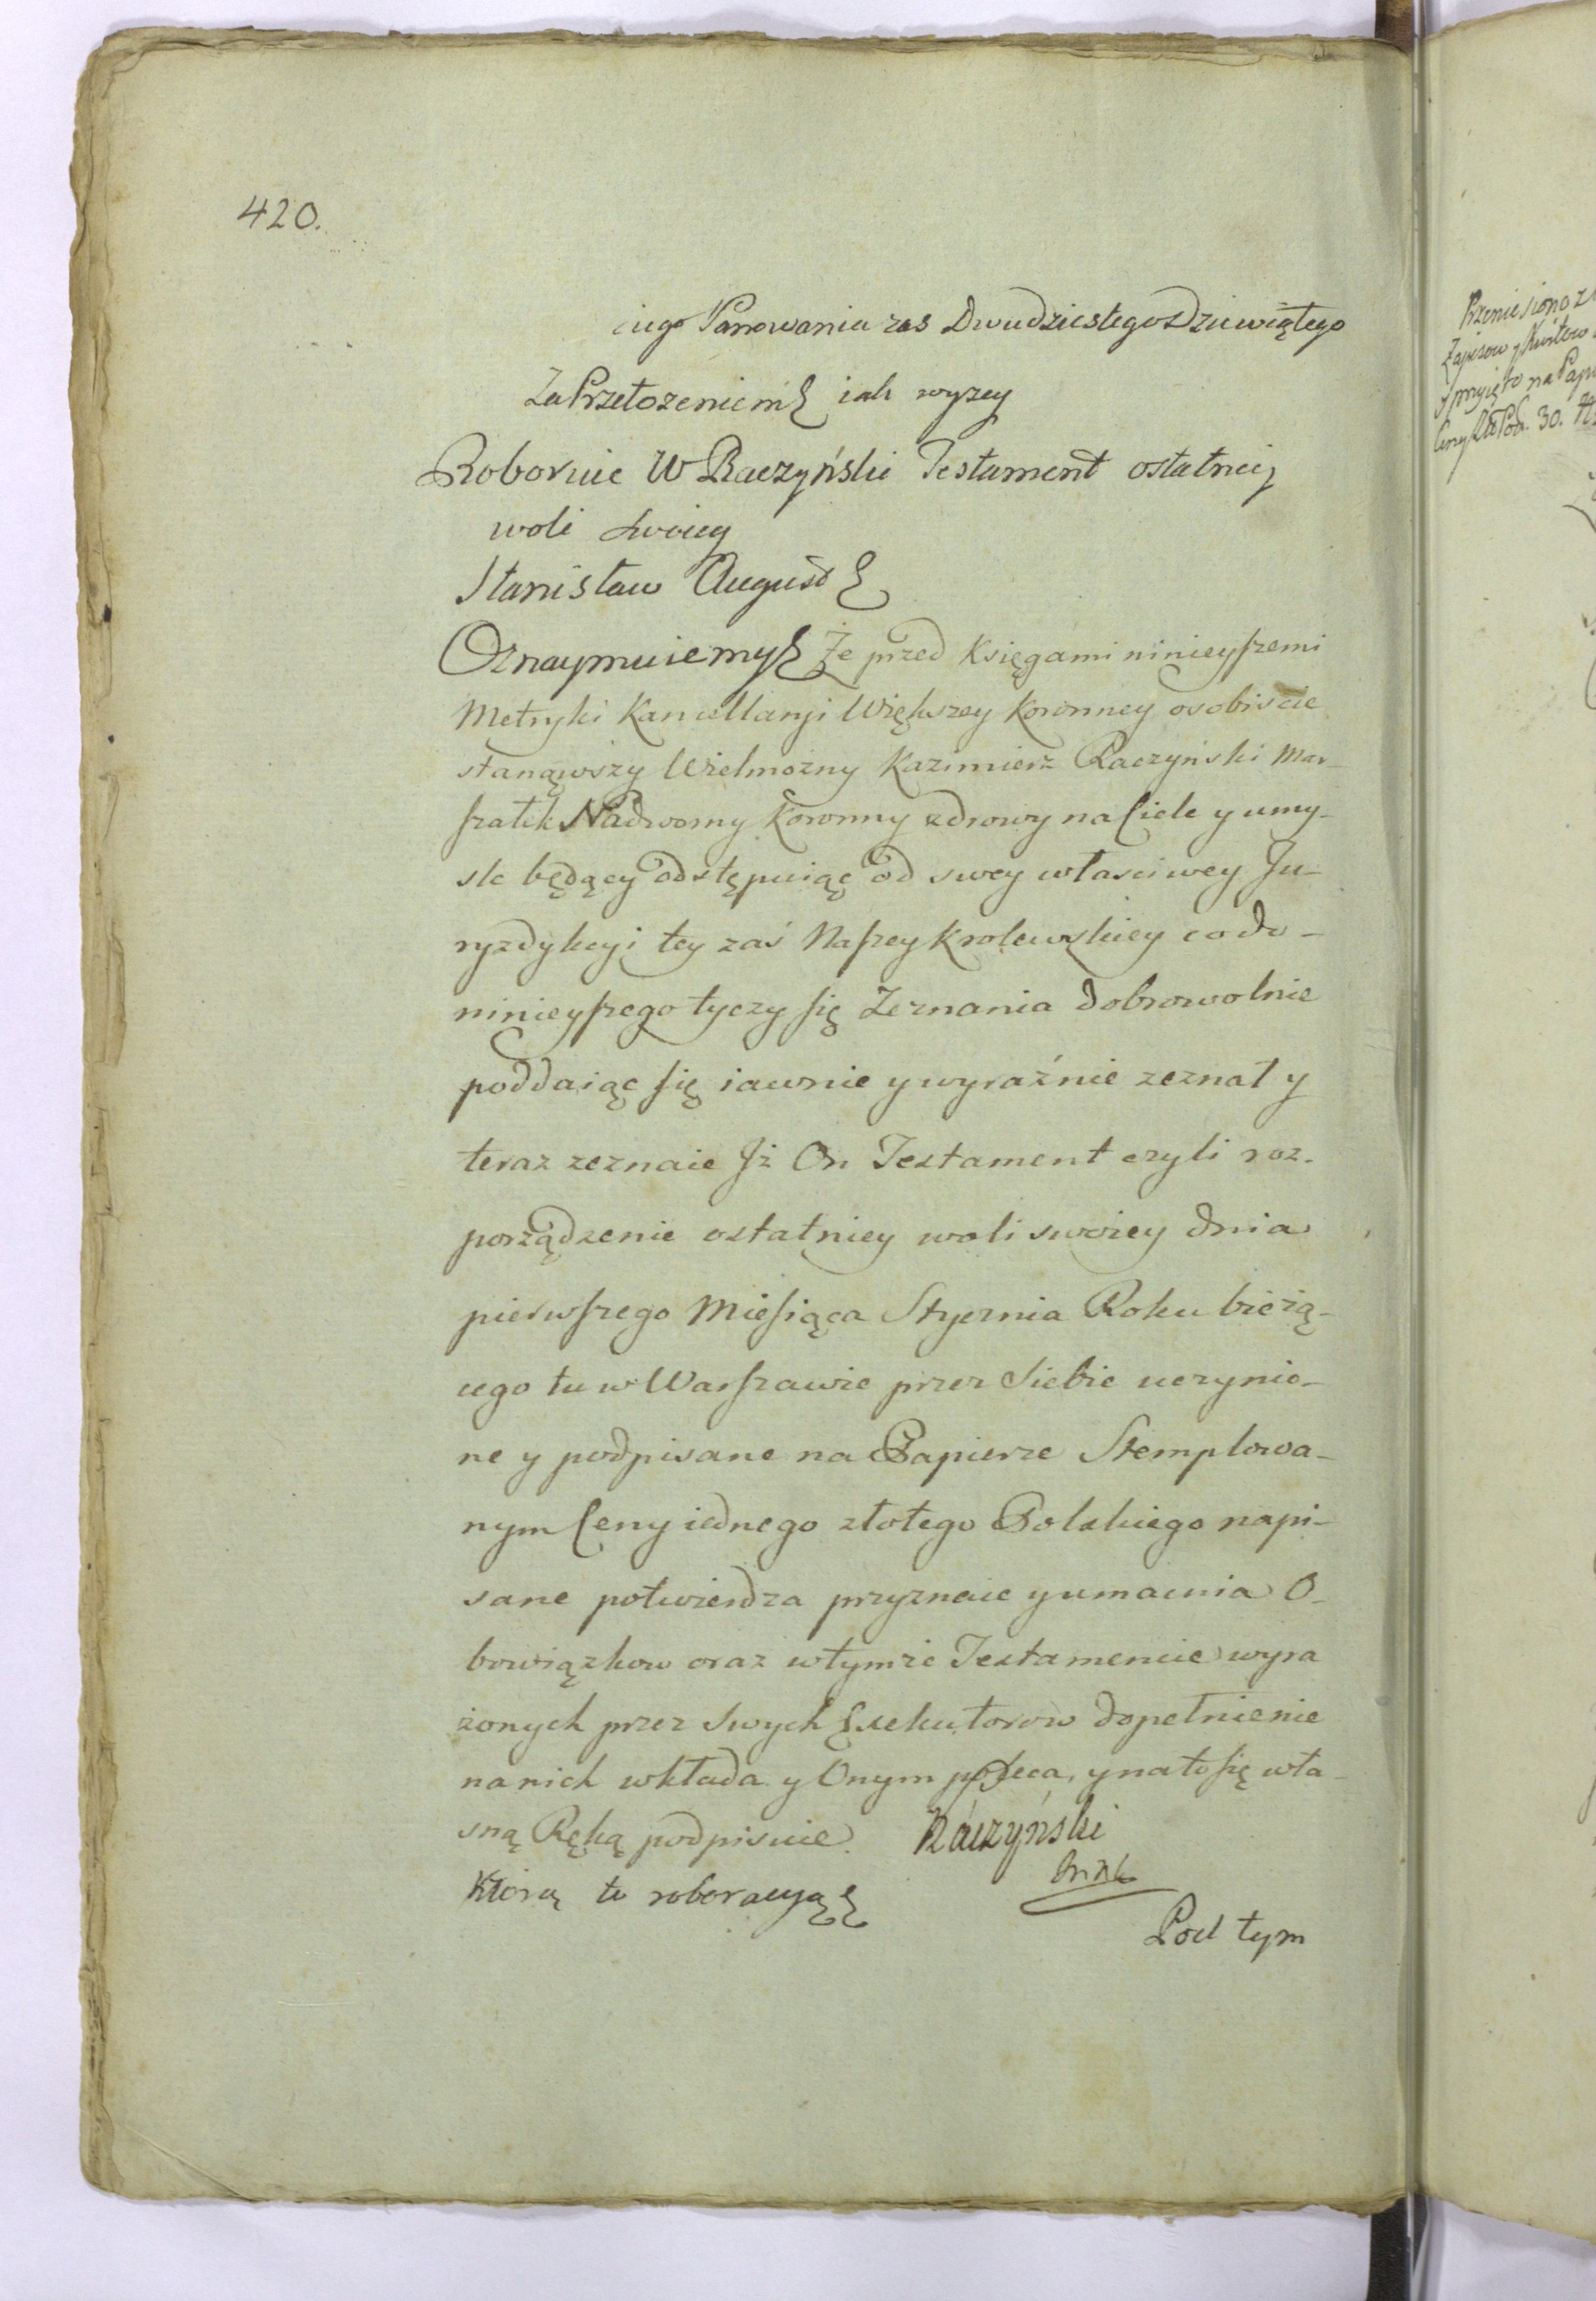 420.
iego Panowania zas Dwudziestego Dziewiątego
Za Przełozeniem & iak wyzey
Roboruie W Raczyński Testament ostatniey
woli swoiey
Stanisław August &
Oznaymuiemy & Że przed Księgami ninieyszemi
Metryki Kancellaryi Większey Koronney osobiscie
stanąwszy Wielmozny Kazimierz Raczyński Mar-
szałek Nadworny Koronny zdrowy na Ciele y umy-
sle będący odstępuiąc od swey własciwey Ju-
ryzdykcyi tey zaś Naszey Krolewskiey co do-
ninieyszego tyczy się Zeznania dobrowolnie
poddaiąc się iawnie y wyraźnie zeznał y
teraz zeznaie Jż On Testament czyli roz-
porządzenie ostatniey woli swoiey dnia
pierwszego Miesiąca Stycznia Roku bieżą-
cego tu w Warszawie przez Siebie uczynio-
ne y podpisane na Papierze Stemplowa-
nym Ceny iednego złotego Polskiego napi-
sane potwierdza przyznaie y umacnia O-
bowiązkow oraz w tymże Testamencie wyra
żonych przez Swych Exekutorow dopełnienie
na nich wkłada y Onym poleca, y na to się wła-
sną Ręką podpisuie. Raczyński
Ktorą to roboracyą &
Pod tym
Przeniesiono z
Zapisow y Kwitow
y przyięto na Papi
Ceny
30.